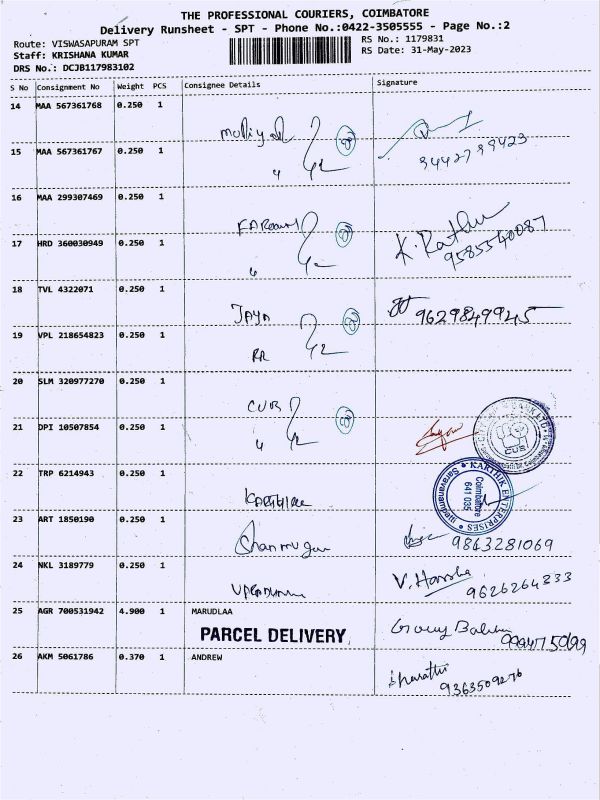 THE PROFESSIONAL COURIERS, COIMBATORE
Delivery Runsheet - SPT - Phone No.:0422-3505555 - Page No.:2
Route: VISWASAPURAM SPT
Staff: KRISHANA KUMAR
DRS No.: DCJB117983102
RS No.: 1179831
RS Date: 31-May-2023
S No Consignment No Weight PCS Consignee Details Signature
14 MAA 567361768 0.250 1
15 MAA 567361767 0.250 1
9442799423
16 MAA 299307469 0.250 1
17 HRD 360030949 0.250 1
K. Rathu
9585540087
18 TVL 4322071 0.250 1
JAYA
9629849945
19 VPL 218654823 0.250 1
RR
20 SLM 320977270 0.250 1
CUB
21 DPI 10507854 0.250 1
CUB
22 TRP 6214943 0.250 1
KARTHIK ENTERPRISES
Coimbatore
641 035
23 ART 1850190 0.250 1
Shanmugam
9843281069
24 NKL 3189779 0.250 1
V. Harsha
9626264333
25 AGR 700531942 4.900 1 MARUDLAA
PARCEL DELIVERY
26 AKM 5061786 0.370 1 ANDREW
bharathi
9363509276